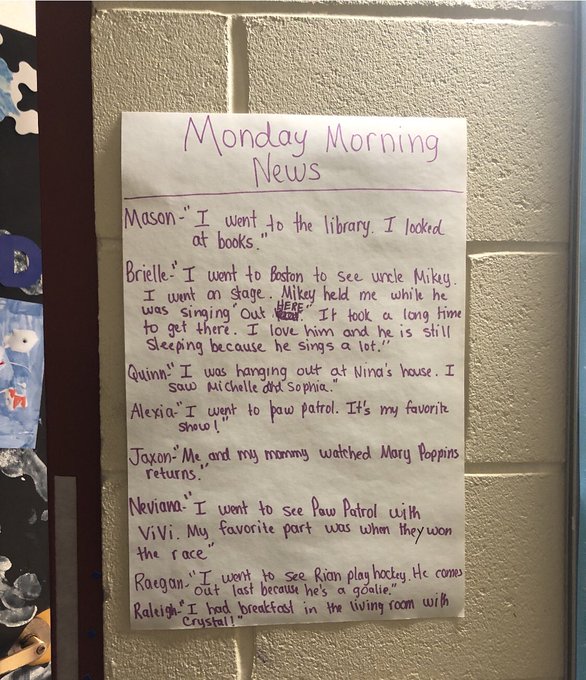 Monday Morning
News
Mason-"I went to the library. I looked
at books."
Brielle-"I went to Boston to see uncle Mikey.
I went on stage. Mikey held me while he
was singing "Out HERE" It took a long time
to get there. I love him and he is still
sleeping because he sings a lot."
Quinn-"I was hanging out at Nina's house. I
saw Michelle and Sophia."
Alexia-"I went to paw patrol. It's my favorite
show!"
Jaxon-"Me and my mommy watched Mary Poppins
returns."
Neviana-"I went to see Paw Patrol with
ViVi. My favorite part was when they won
the race"
Raegan-"I went to see Rian play hockey. He comes
out last because he's a goalie."
Raleigh-"I had breakfast in the living room with
Crystal!"